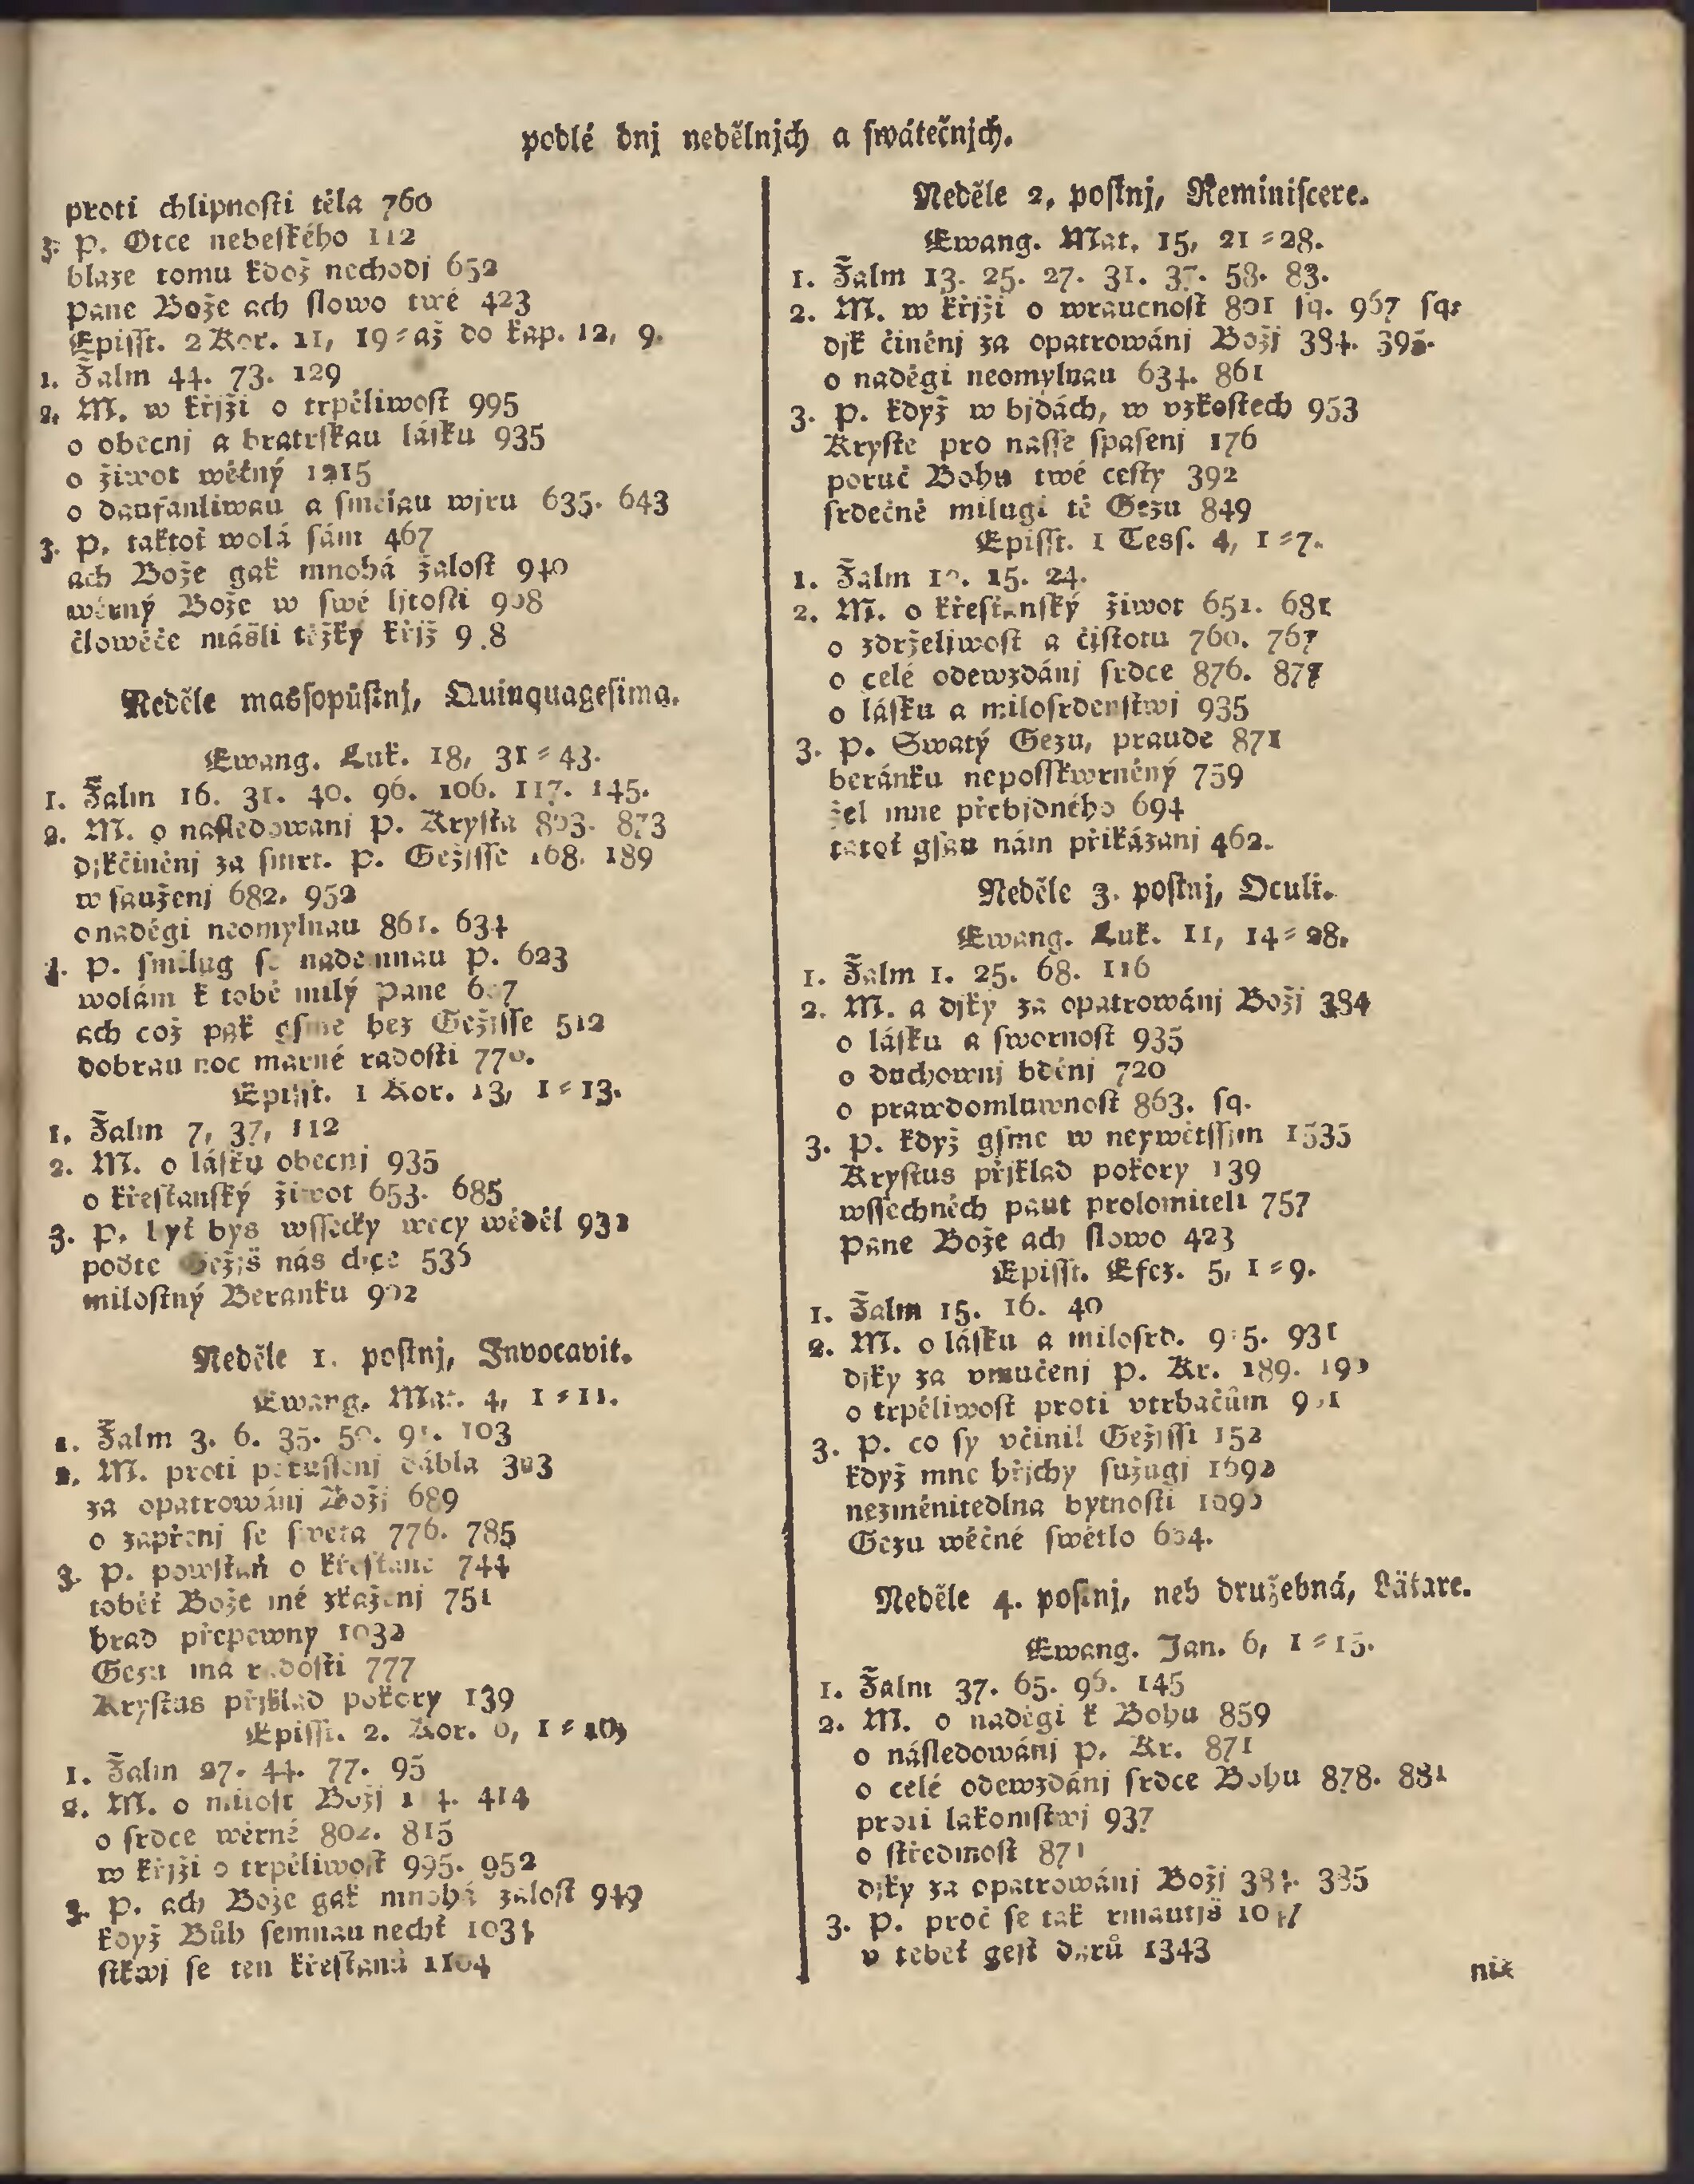 podlé dnj nedělnjch a swátečnjch.
proti chlipnosti těla 760
3. P. Otce nebeského 112
blaze tomu kdož nechodj 652
Pane Bože ach slowo twé 423
Episst. 2 Kor. 11, 19 = až do kap. 12, 9.
1. Žalm 44. 73. 129
2. M. w křjži o trpěliwost 995
o obecnj a bratrskau lásku 935
o žiwot wěčný 1215
o daufanliwau a smělau wjru 635. 643
3. P. taktoť wolá sám 467
ach Bože gak mnohá žalost 940
wěrný Bože w swé ljtosti 908
člowěče mášli těžký křjž
Neděle massopůstnj, Quinquagesima.
Ewang. Luk. 18, 31 = 43.
1. Žalm 16. 31. 40. 96. 106. 117. 145.
2. M. o następowanj P. Krysta 803. 873
djkčiněnj za smrt. P. Gežjsse 168. 189
w saużenj 682. 952
o naděgi neomylnau 861. 634
3. P. smilug se nademnau P. 623
wolám k tobě milý Pane
ach což pak gsme bez Gežjsse 512
dobrau noc marné radosti 770.
Episst. 1 Kor. 13, 1 = 13.
1. Žalm 7, 37, 112
2. M. o lásku obecnj 935
o křesťanský žiwot 653. 685
3. P. byť bys wssecky wěcy wěděl 932
poďte Gežjš nás dice 535
milostný Beranku 902
Neděle 1. postnj, Invocavit.
Ewang. Mat. 4, 1 = 11.
1. Žalm 3. 6. 35. 50. 91. 103
2. M. proti pokussenj ďábla 303
za opatrowánj Božj 689
o zapřenj se sweta 776. 785
3. P. powstaň o křesťane 744
toběť Bože mé zkaženj 751
hrad přepewny 1032
Gezu má radosti 777
Krystus přjklad pokory 139
Episst. 2. Kor. 6, 1 = 10,
1. Žalm 27. 44. 77. 95
2. M. o milost Božj 414
o srdce wěrné 802. 815
w křjži o trpěliwost 995. 952
3. P. ach Bože gak mnohá žalost 940
když Bůh semnau nechť 1034
stkwj se ten křesťanů 1104
Neděle 2, postnj, Reminiscere.
Ewang. Mat. 15, 21 = 28.
1. Žalm 13. 25. 27. 31. 37. 58. 83.
2. M. w křjži o wraucnost 801 sq. 967 sq:
djk činěnj za opatrowánj Božj 384. 395.
o naděgi neomylnau 634. 861
3. P. když w bjdách, w vzkostech 953
Kryste pro nasse spasenj 176
poruč Bohu twé cesty 392
srdečně milugi tě Gezu 849
Episst. 1 Tess. 4, 1 = 7.
1. Žalm 10. 15. 24.
2. M. o křesťanský žiwot 651. 681
o zdrželiwost a čistotu 760. 767
o celé odewzdánj srdce 876. 877
o lásku a milosrdenstwj 935
3. P. Swatý Gezu, praude 871
beránku neposskwrněný 759
žel mne přebjdného 694
tatoť gsau nám přikázanj 462.
Neděle 3. postnj, Oculi.
Ewang. Luk. 11, 14 = 28.
1. Žalm 1. 25. 68. 116
2. M. a djky za opatrowánj Božj 384
o lásku a swornost 935
o duchownj bděnj 720
o prawdomluwnost 863. sq.
3. P. když gsme w neywětssjm 1535
Krystus přjklad pokory 139
wssechněch paut prolomiteli 757
Pane Bože ach slowo 423
Episst. Efez. 5, 1 = 9.
1. Žalm 15. 16. 40
2. M. o lásku a milosrd. 935. 931
djky za vmučenj P. Kr. 189. 190
o trpěliwost proti vtrhačům 901
3. P. co sy včinil Gežjssi 152
když mne hřjchy sužugj 1692
nezměnitedlna bytnosti
Gezu wěčné swětlo 634.
Neděle 4. postnj, neb družebná, Lätare.
Ewang. Jan. 6, 1 = 15.
1. Žalm 37. 65. 96. 145
2. M. o naděgi k Bohu 859
o následowánj P. Kr. 871
o celé odewzdánj srdce Bohu 878. 881
proti lakomstwj 937
o střjdmost 871
djky za opatrowánj Božj 384. 385
3. P. proč se tak rmautjš 1047
v tebeť gest darů 1343
nic